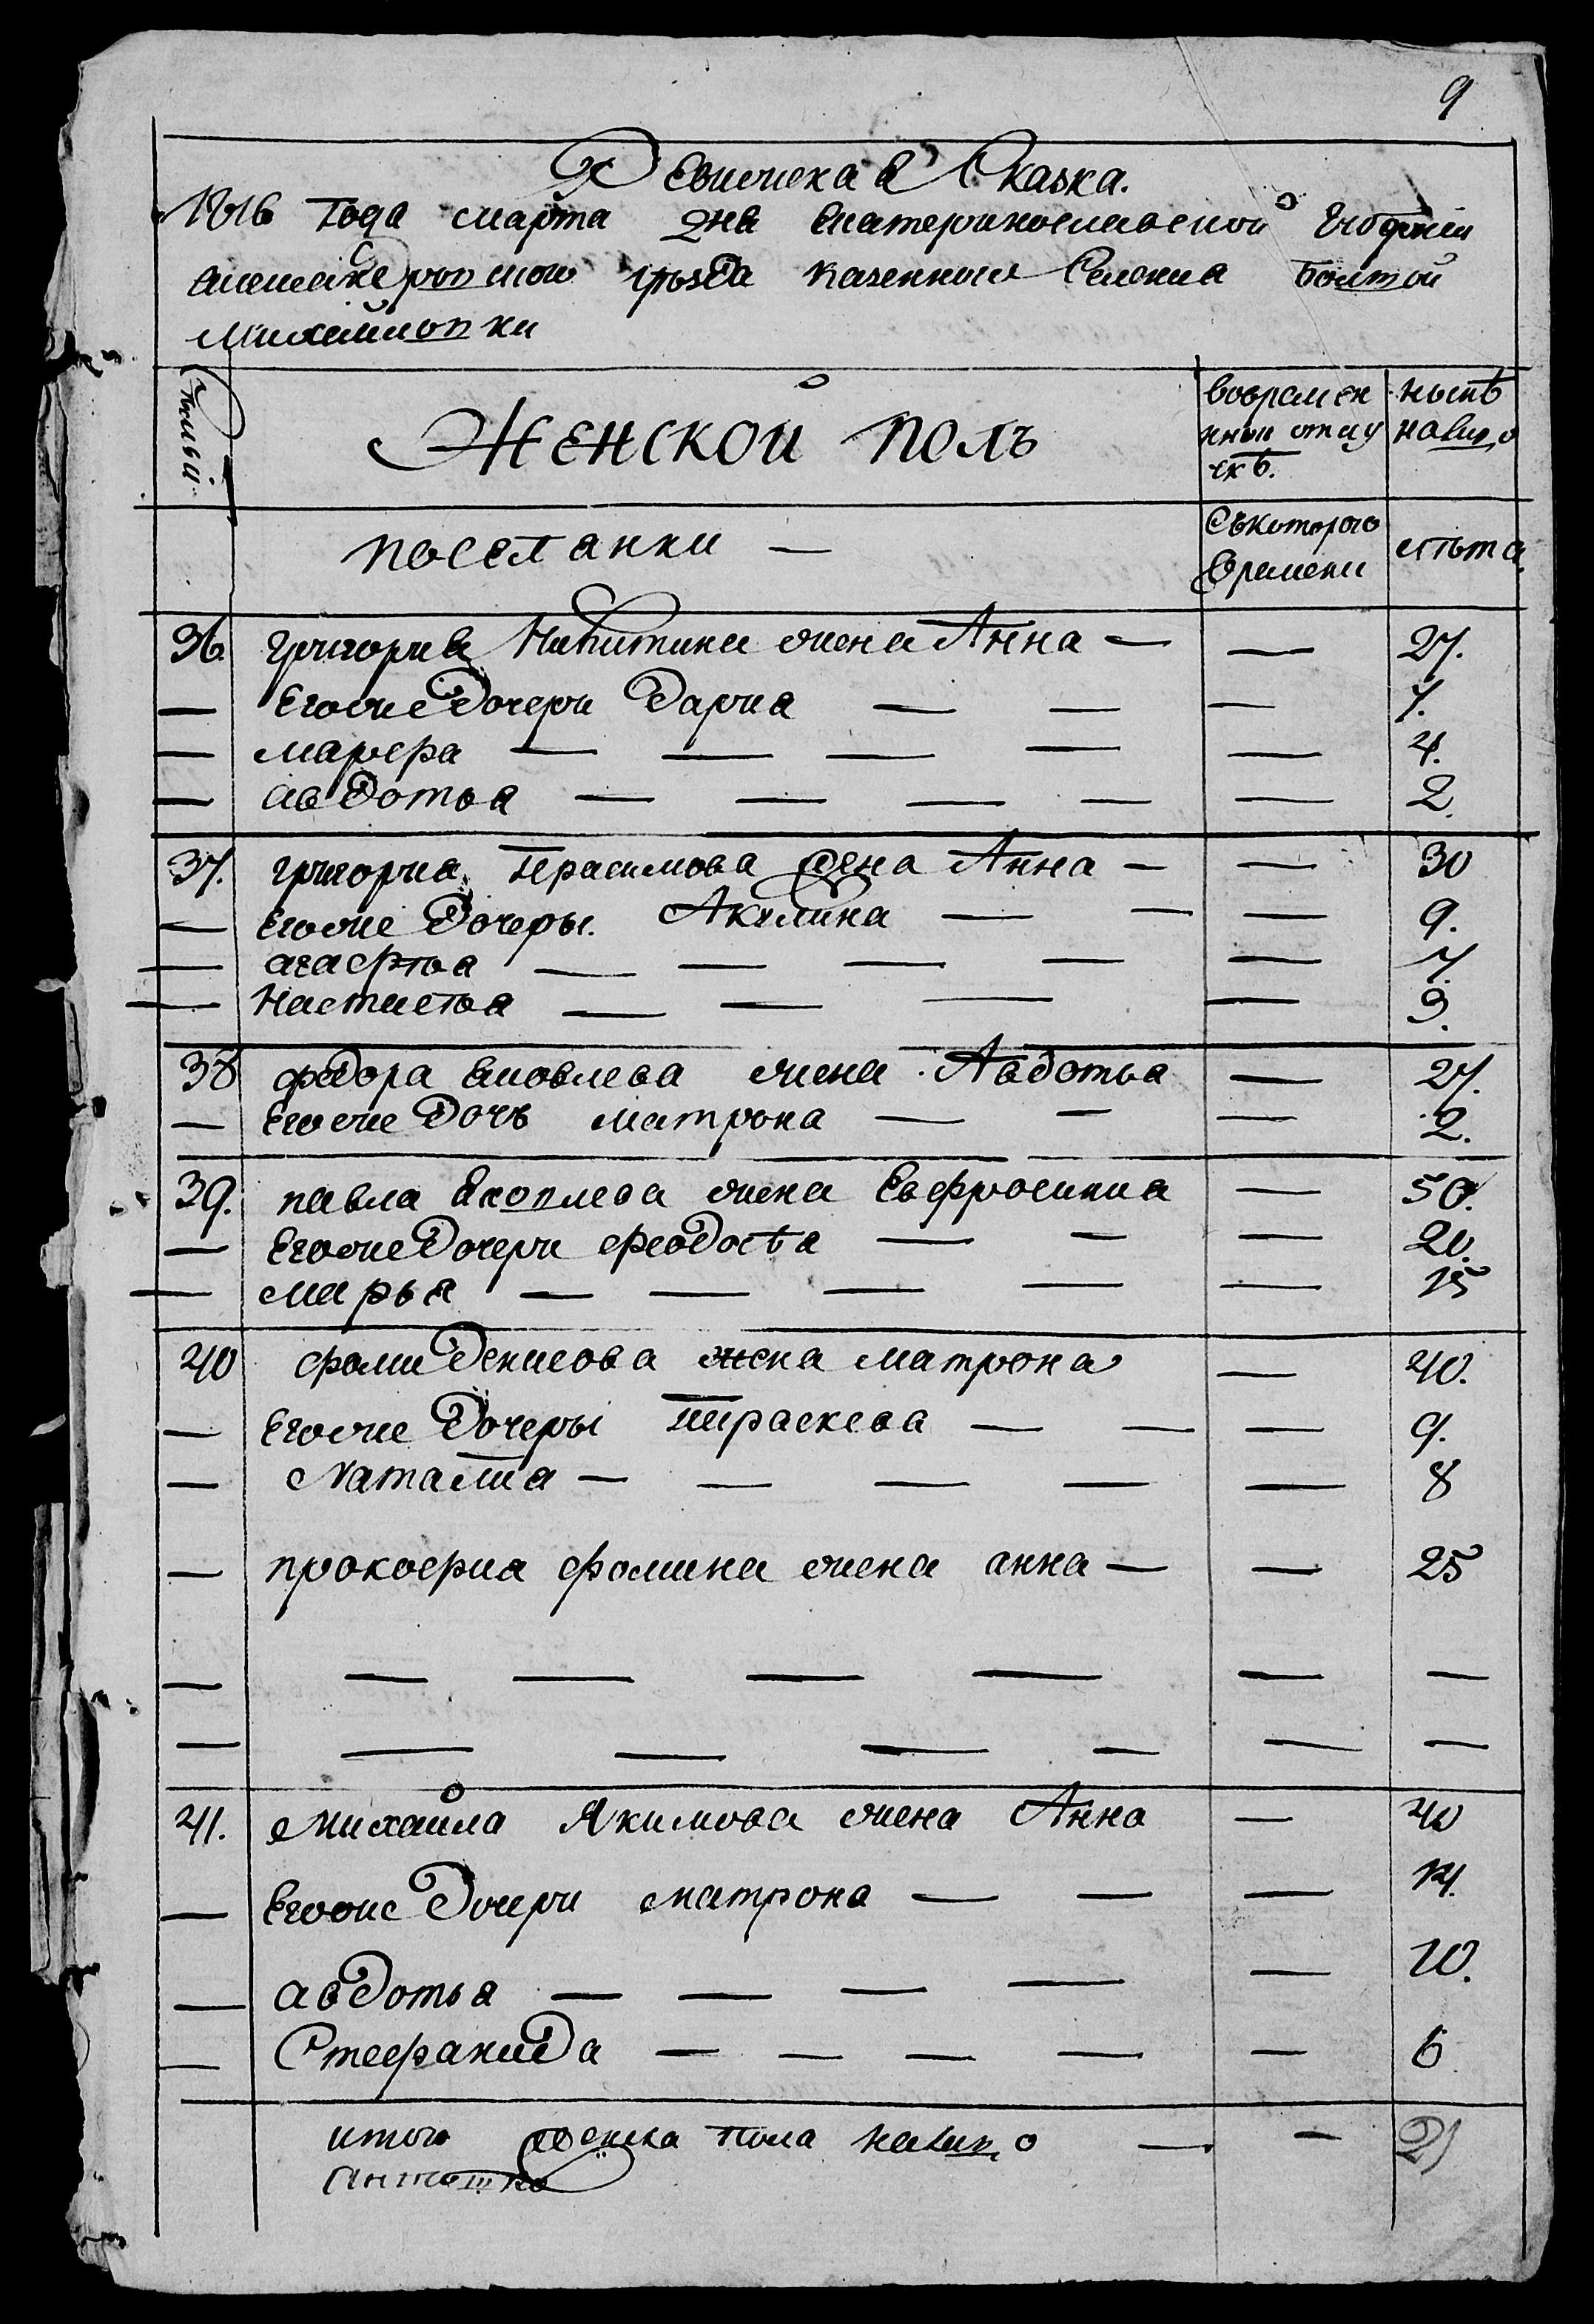 9
Ревижска я Сказка.
1816 года марта дня екатеринославской губернии
уѣзда казенного селения
Михайловки
Семьи
Женской полъ
вовремен
ной отлу
чкѣ.
нынѣ
налицо
поселянки —
Съкоторого
времени
лѣта.
36. григория Никитина жена Анна — — 27.
— Егоже дочери Дария — — — 7.
— марфа — — — — — 4.
— авдотья — — — — — 2.
37. григория герасимова жена Анна — — 30
— Егоже дочеры. Акулина — — — 9.
— агафья — — — — — 7.
— Настасья — — — — 3.
38 федора Яковлева жена Авдотья — 27.
— Егоже дочь матрона — — — 2.
39. павла Яковлева жена Евфросиниа — 50.
— Егоже дочери феодосья — — — 20.
— марья — — — — — 15
40 фоми денисова жена матрона — 40.
— Егоже дочеры параскева — — — 9.
— Наталиа — — — — — 8
— прокофиа фомина жена анна — — 25
— — — — — — —
— — — — — — —
41. михаила Якимова жена Анна — 40
— Егоже дочери матрона — — — 14.
— авдотья — — — — — 10.
— Стефанида — — — — — 6
итого женска пола налицо — — 21